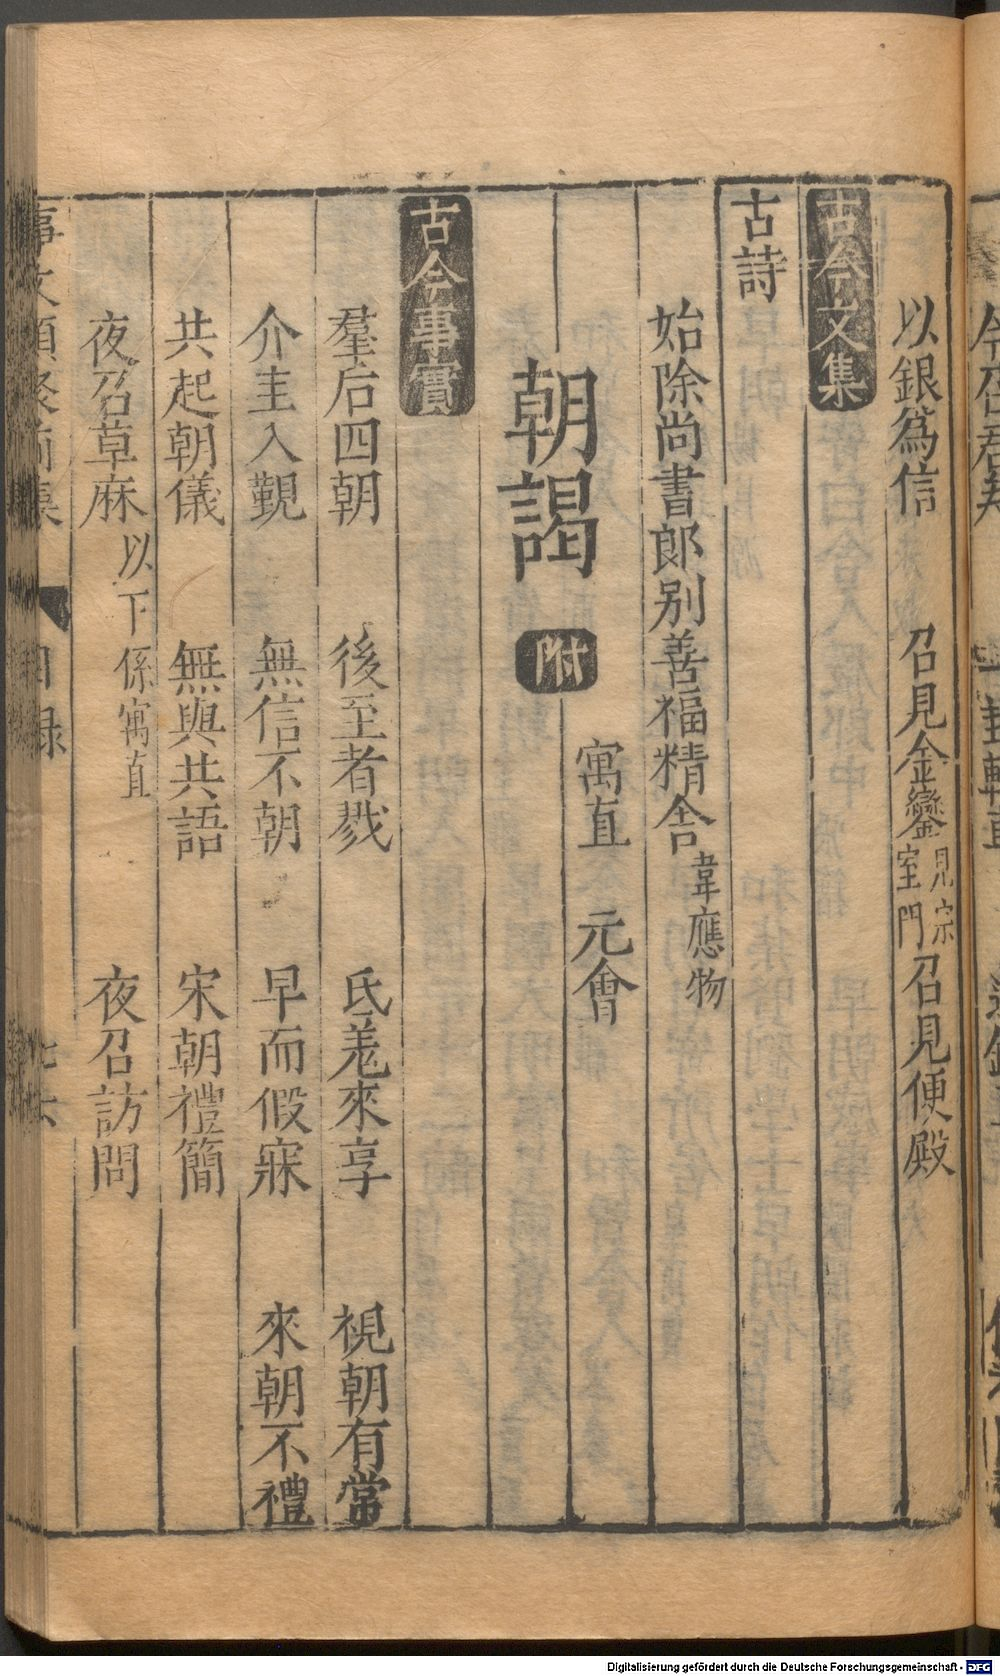 以銀爲信 召見金鑾 見宗室門 召見便殿
古今文集
古詩
始除尚書郎别善福精舍 韋應物
寓直 元會
朝謁 附
古今事實
羣后四朝 後至者戮 氐羗來享 視朝有常
介圭入覲 無信不朝 早而假寐 來朝不禮
共起朝儀 無與共語 宋朝禮簡
夜召草麻 以下係寓直 夜召訪問
事文類聚前集 目録
Digitalisierung gefördert durch die Deutsche Forschungsgemeinschaft - DFG